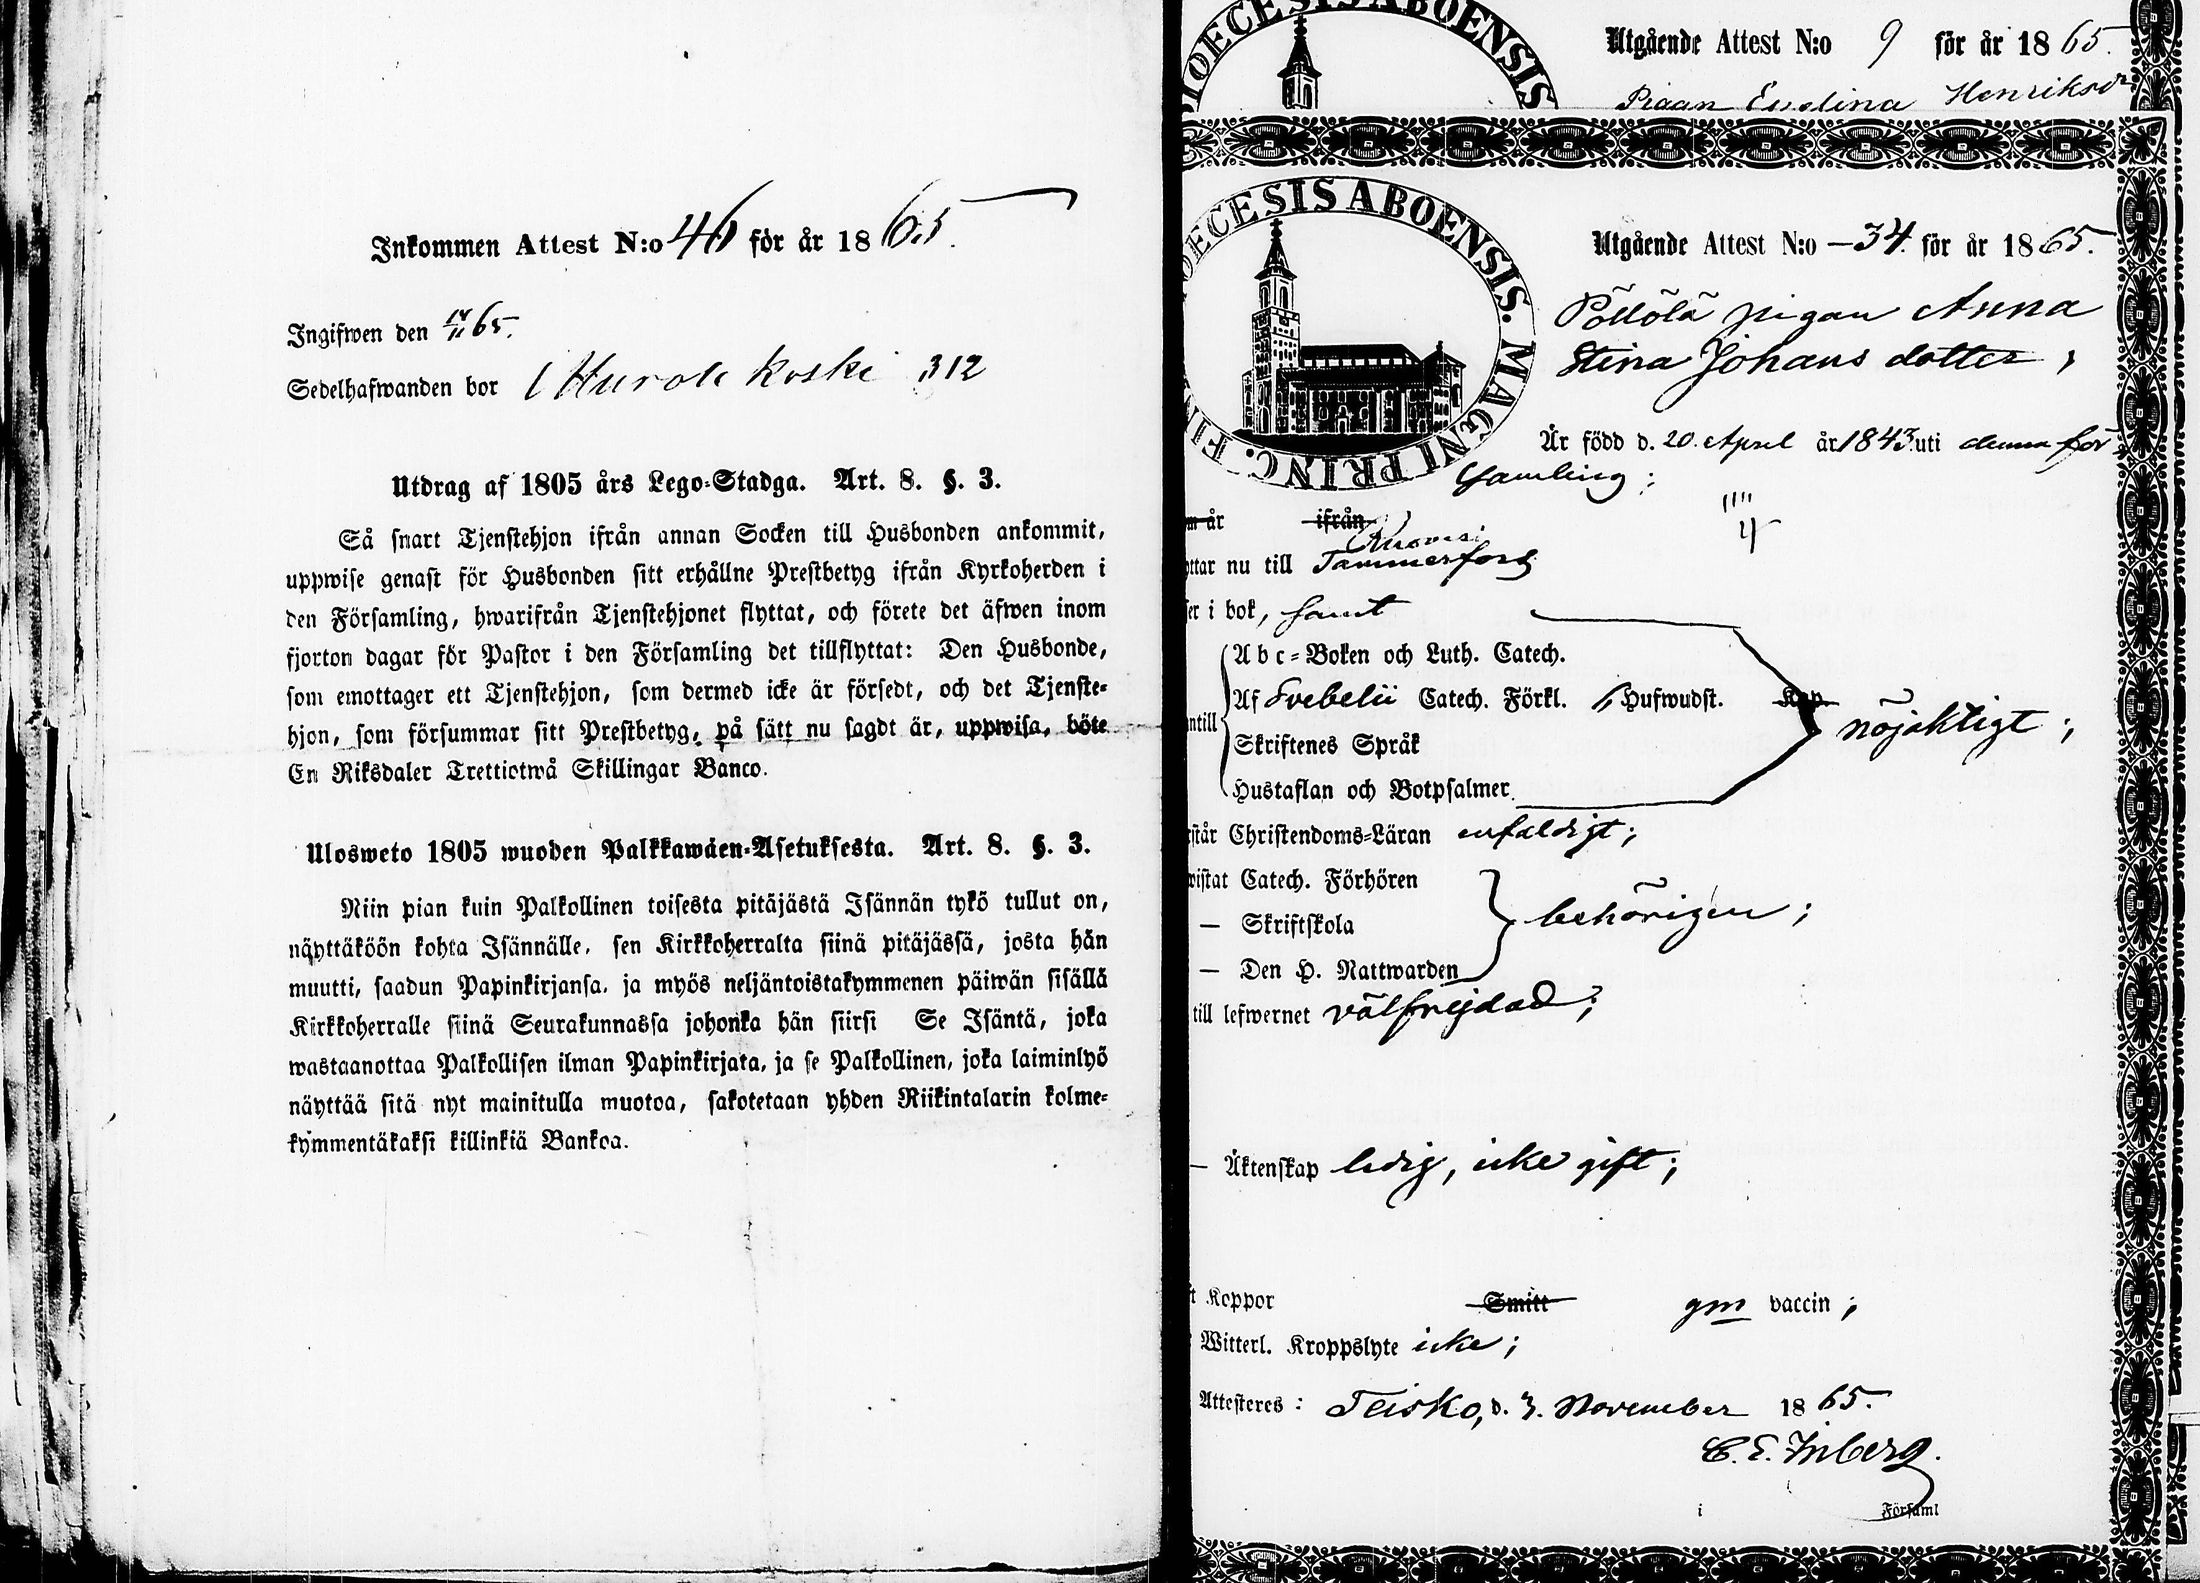 Inkommen Attest N:o 46 för år 1865.
Ingifwen den 65.
Sedelhafwanden bor Murole Koski 312
Utdrag af 1805 års Lego-Stadga. Art. 8. §. 3.
Så snart Tjenstehjon ifrån annan Socken till Husbonden ankommit,
uppwise genast för Husbonden sitt erhållne Prestbetyg ifrån Kyrkoherden i
den Församling, hwarifrån Tjenstehjonet flyttat, och förete det äfwen inom
fjorton dagar för Pastor i den Församling det tillflyttat: Den Husbonde,
som emottager ett Tjenstehjon, som dermed icke är försedt, och det Tjenste-
hjon, som försummar sitt Prestbetyg, på sätt nu sagdt är, uppwisa, böte
En Riksdaler Trettiotwå Skillingar Banco.
Ulosweto 1805 wuoden Palkkawäen-Asetuksesta. Art. 8. §. 3.
Niin pian kuin Palkollinen toisesta pitäjästä Isännän tykö tullut on,
näyttäköön kohta Isännälle, sen Kirkkoherralta siinä pitäjässä, josta hän
muutti, saadun Papinkirjansa, ja myös neljäntoistakymmenen päiwän sisällä
Kirkkoherralle siinä Seurakunnassa johonka hän siirsi Se Isäntä, joka
wastaanottaa Palkollisen ilman Papinkirjata, ja se Palkollinen, joka laiminlyö
näyttää sitä nyt mainitulla muotoa, sakotetaan yhden Riikintalarin kolme-
kymmentäkaksi killinkiä Bankoa.
DIOECESIS ABOENSIS
Utgående Attest N:o 9 för år 1865.
Pigan Eudina Henriksdr
DIOECESIS ABOENSIS. MAGNI PRINC. FIN
Utgående Attest N:o 34. för år 1865.
Pöllölä pigan Anna
Stina Johans dotter,
Är född d. 20. April år 1843 uti denna för
samling;
m år ifrån
Ruovesi
ttar nu till Tammerfors
ser i bok, samt
Abc-Boken och Luth. Catech.
Af Svebelii Catech. Förkl. Hufwudst. Kap.
ntill nöjaktigt;
Skriftenes Språk
Hustaflan och Botpsalmer
rstår Christendoms-Läran enfaldigt;
wistat Catech. Förhören
— Skriftskola behörigen;
— Den H. Nattwarden
till lefwernet välfrejdad;
— Äktenskap ledig, icke gift;
t Koppor Smitt gm vaccin;
Witterl. Kroppslyte icke;
Attesteres: Teisko, d. 3. November 1865.
C. E. Inberg.
i Församl